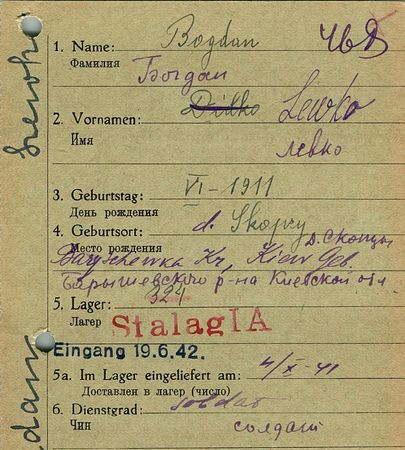 1. Name: Bogdan
Фамилия Богдан
2. Vornamen: Lewko
Имя левко
3. Geburtstag: VI-1911
День рождения
4. Geburtsort: d. Skopzy
Место рождения д. Скопцы
Baryschewka Kr, Kiew Geb
Барышевского р-на Киевской обл
5. Lager: 324
Лагерь Stalag IA
Eingang 19.6.42.
5a. Im Lager eingeliefert am: 4/X-41
Доставлен в лагер (число)
6. Dienstgrad: soldat
Чин солдат